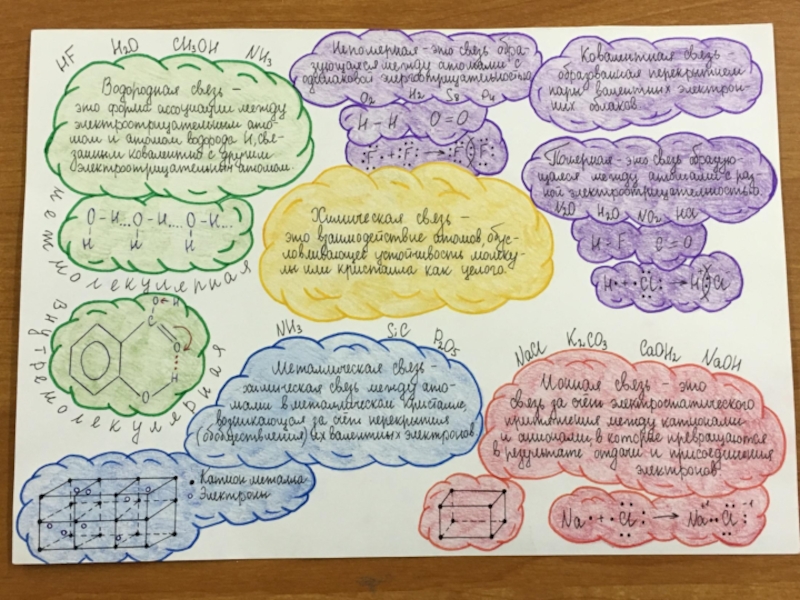 HF H₂O CH₃OH NH₃
Водородная связь –
это форма ассоциации между
электроотрицательным ато-
мом и атомом водорода H, свя-
занным ковалентно с другим
электроотрицательным атомом.
O – H...O – H....O – H...
H H H
межмолекулярная
внутремолекулярная
O H
C
O
H
O
Неполярная – это связь обра-
зующаяся между атомами с
одинаковой энероотрицательностью
O₂ H₂ S₈ P₄
H – H O = O
F + F → F F
Ковалентная связь –
образованая перекрытием
пары валентных электрон-
ных облаков
Полярная – это связь образую-
щаяся между атомами с раз-
ной электроотрицательностью.
H₂O NO₂ HCl
H – F C = O
H + Cl → H Cl
Химическая связь –
это взаимодействие атомов, обус-
ловливающее устойчивость молеку-
лы или кристалла как целого.
NH₃ SiC P₂O₅
Металлическая связь –
химическая связь между ато-
мами в металлическом кристалле,
возникающая за счёт перекрытия
(обобществления) их валентных электронов
Катион металла
Электроны
NaCl K₂CO₃ CaOH₂ NaOH
Ионная связь – это
связь за счёт электростатического
притяжения между катионами
и анионами, в которые превращаются
в результате отдачи и присоединения
электронов
Na + Cl → Na⁺¹ Cl⁻¹